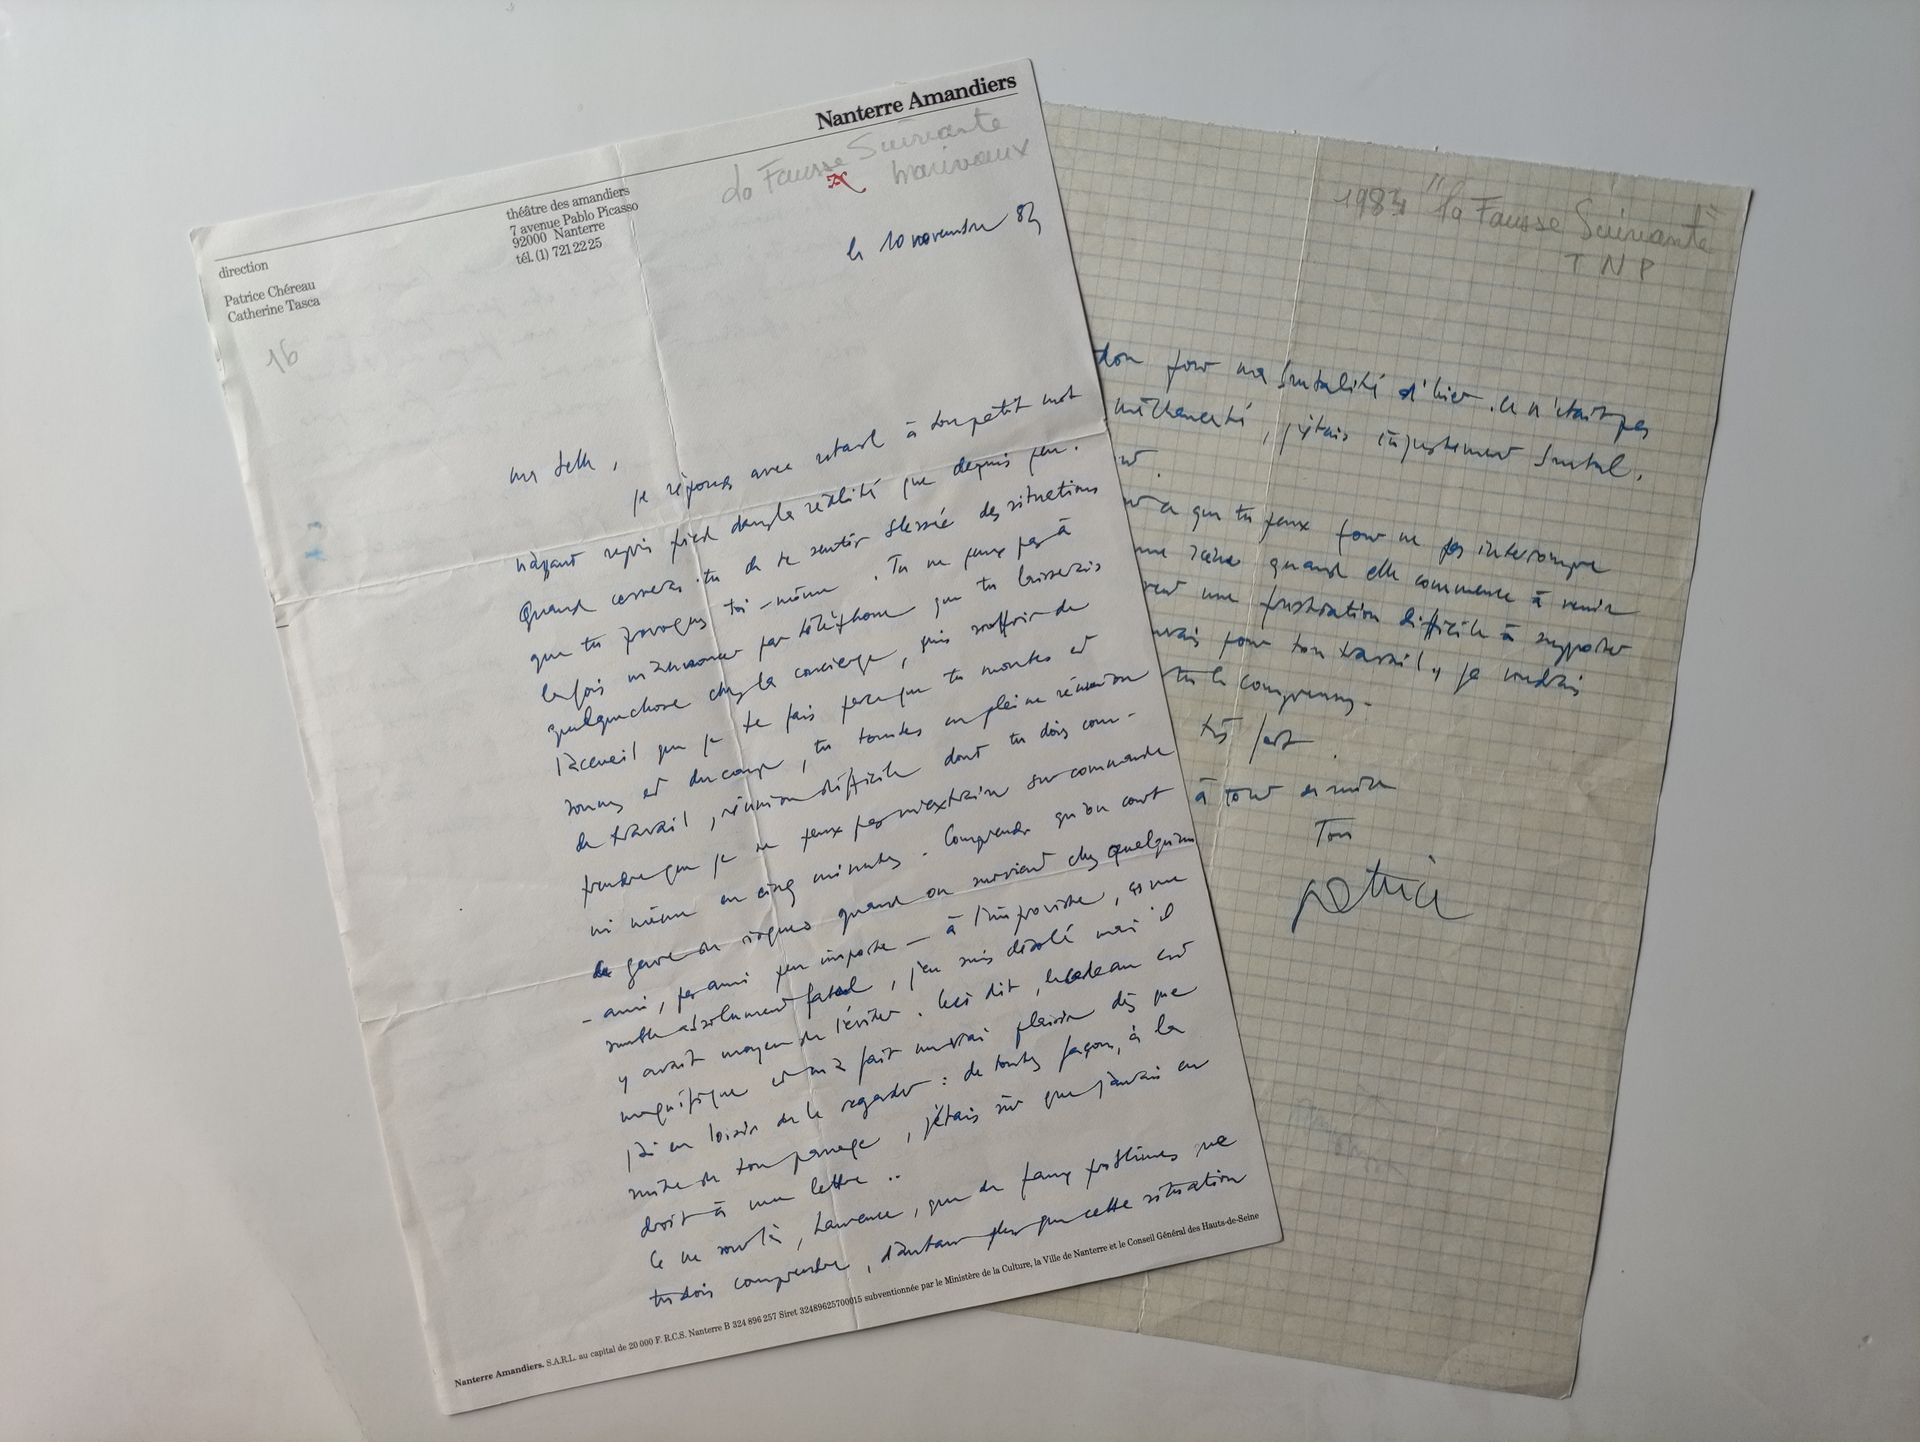 Nanterre Amandiers
la Fausse Suivante
Marivaux
théâtre des amandiers
7 avenue Pablo Picasso
92000 Nanterre
tél. (1) 721 22 25
direction
Patrice Chéreau
Catherine Tasca
16
le 10 novembre 83
ma belle,
je réponds avec retard à ton petit mot
n'ayant repris pied dans la réalité que depuis peu.
Quand cesseras-tu de te sentir blessée des situations
que tu provoques toi-même. Tu ne peux pas à
la fois m'annoncer par téléphone que tu laisserais
quelque chose chez la concierge, puis souffrir de
l'accueil que je te fais parce que tu montes et
sonnes et du coup, tu tombes en pleine réunion
de travail, réunion difficile dont tu dois com-
prendre que je ne peux pas m'extraire sur commande
ni même en cinq minutes. Comprends qu'on court
ce genre de risques quand on survient chez quelqu'un
- ami, pas ami peu importe - à l'improviste, ça me
semble absolument fatal, j'en suis désolé mais il
y avait moyen de l'éviter. Ceci dit, le cadeau est
magnifique et m'a fait un vrai plaisir dès que
j'ai eu loisir de le regarder : de toutes façons, à la
suite de ton passage, j'étais sûr que j'aurais eu
droit à une lettre ..
Ce ne sont là, Laurence, que de faux problèmes que
tu dois comprendre, d'autant plus que cette situation
Nanterre Amandiers. S.A.R.L. au capital de 20 000 F. R.C.S. Nanterre B 324 896 257 Siret 32489625700015 subventionnée par le Ministère de la Culture, la Ville de Nanterre et le Conseil Général des Hauts-de-Seine
1983 "la Fausse Suivante"
TNP
don pour ma brutalité d'hier. Ce n'était pas
méchanceté, j'étais injustement brutal.
ce que tu peux pour ne pas interrompre
une scène quand elle commence à venir
une frustration difficile à supporter
pour ton travail, je voudrais
tu le comprennes.
très fort.
à tout de suite
Ton
patrice